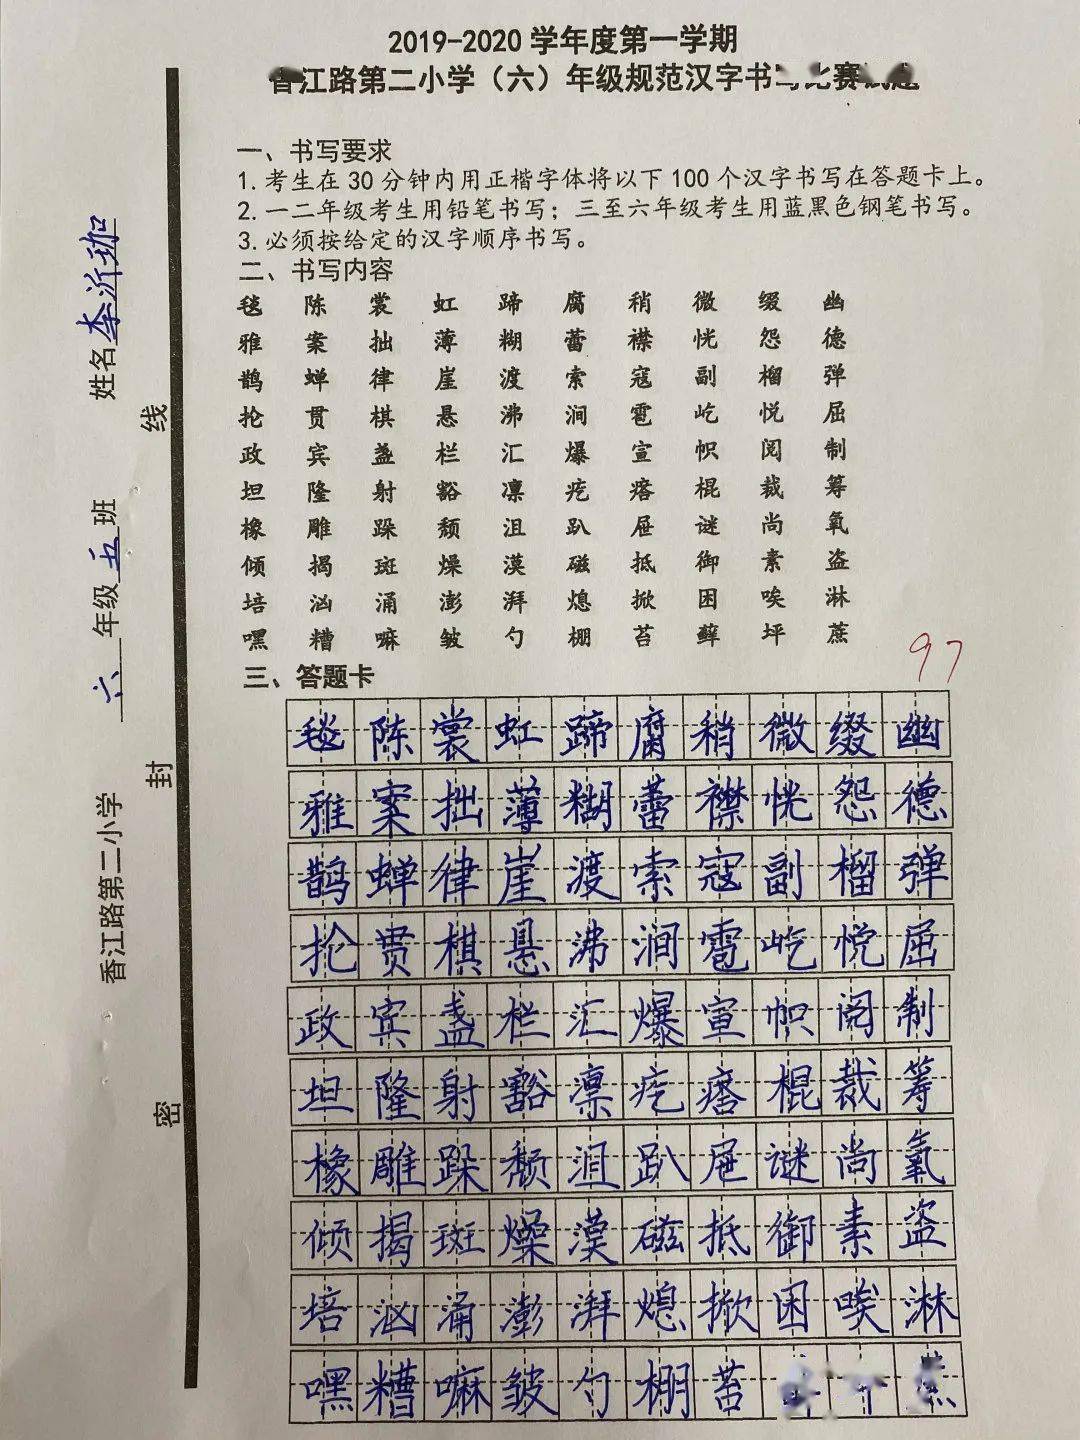 2019-2020 学年度第一学期
香江路第二小学（六）年级规范汉字书写比赛试题
一、书写要求
1.考生在 30 分钟内用正楷字体将以下 100 个汉字书写在答题卡上。
2.一二年级考生用铅笔书写；三至六年级考生用蓝黑色钢笔书写。
3.必须按给定的汉字顺序书写。
二、书写内容
毯 陈 裳 虹 蹄 腐 稍 微 缀 幽
雅 案 拙 薄 糊 蕾 襟 恍 怨 德
鹊 蝉 律 崖 渡 索 寇 副 榴 弹
抡 贯 棋 悬 沸 涧 雹 屹 悦 屈
政 宾 盏 栏 汇 爆 宣 帜 阅 制
坦 隆 射 豁 凛 疙 瘩 棍 裁 筹
橡 雕 跺 颓 沮 趴 屉 谜 尚 氧
倾 揭 斑 燥 漠 磁 抵 御 素 盗
培 汹 涌 澎 湃 熄 掀 困 唉 淋
嘿 糟 嘛 皱 勺 棚 苔 藓 坪 蔗
97
三、答题卡
毯 陈 裳 虹 蹄 腐 稍 微 缀 幽
雅 案 拙 薄 糊 蕾 襟 恍 怨 德
鹊 蝉 律 崖 渡 索 寇 副 榴 弹
抡 贯 棋 悬 沸 涧 雹 屹 悦 屈
政 宾 盏 栏 汇 爆 宣 帜 阅 制
坦 隆 射 豁 凛 疙 瘩 棍 裁 筹
橡 雕 跺 颓 沮 趴 屉 谜 尚 氧
倾 揭 斑 燥 漠 磁 抵 御 素 盗
培 汹 涌 澎 湃 熄 掀 困 唉 淋
嘿 糟 嘛 皱 勺 棚 苔
香江路第二小学 六 年级 五 班 姓名 李沂珈
密 封 线